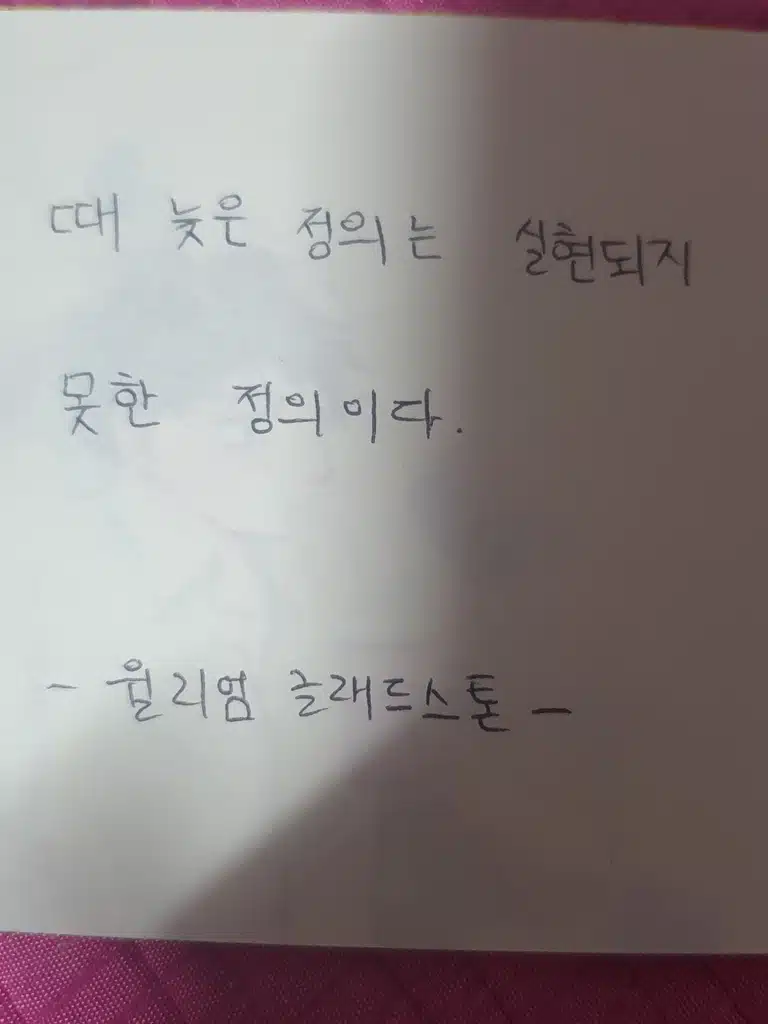 때 늦은 정의는 실현되지
못한 정의이다.
- 윌리엄 글래드스톤 -